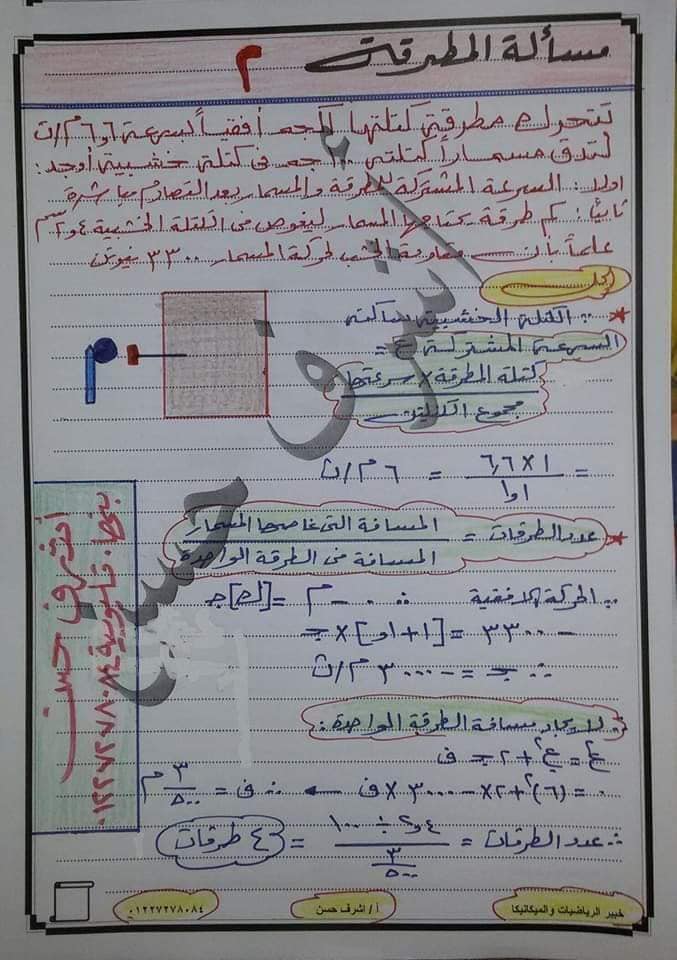 مسألة المطرقة ٢
تتحرك مطرقة كتلتها ١كجم أفقياً بسرعة ٦و٦ م/ث
لتدق مسماراً كتلته ١٠٠ جم فى كتلة خشبية أوجد :
اولاً : السرعة المشتركة للطرقة والمسمار بعد التصادم مباشرة
ثانياً : كم طرقة يحتاجها المسمار ليغوص فى الكتلة الخشبية ٤و٢ سم
علماً بأن مقاومة الخشب لحركة المسمار ٣٣٠٠ نيوتن
الحل
∵ الكتلة الخشبية ساكنة
السرعة المشتركة ع =
كتلة المطرقة × سرعتها
مجموع الكتلتين
= ١×٦,٦ / ١و١ = ٦ م/ث
عدد الطرقات = المسافة التى غاصها المسمار / المسافة فى الطرقة الواحدة
∵ الحركة افقية ∴ ٠ - م = [ك] جـ
- ٣٣٠٠ = [١+١و] × جـ
∴ جـ = - ٣٠٠٠ م/ث
لايجاد مسافة الطرقة الواحدة :
ع٢ = ع٢ + ٢ جـ ف
٠ = (٦)٢ + ٢ × - ٣٠٠٠ × ف ← ∴ ف = ٣/٥٠٠ م
∴ عدد الطرقات = ٤و٢ ÷ ١٠٠ / ٣/٥٠٠ = ٤ طرقات
أشرف حسن
بنها. قليوبية ٠١٢٢٧٢٧٨٠٨٤
أشرف حسن
خبير الرياضيات والميكانيكا
أ / اشرف حسن
٠١٢٢٧٢٧٨٠٨٤